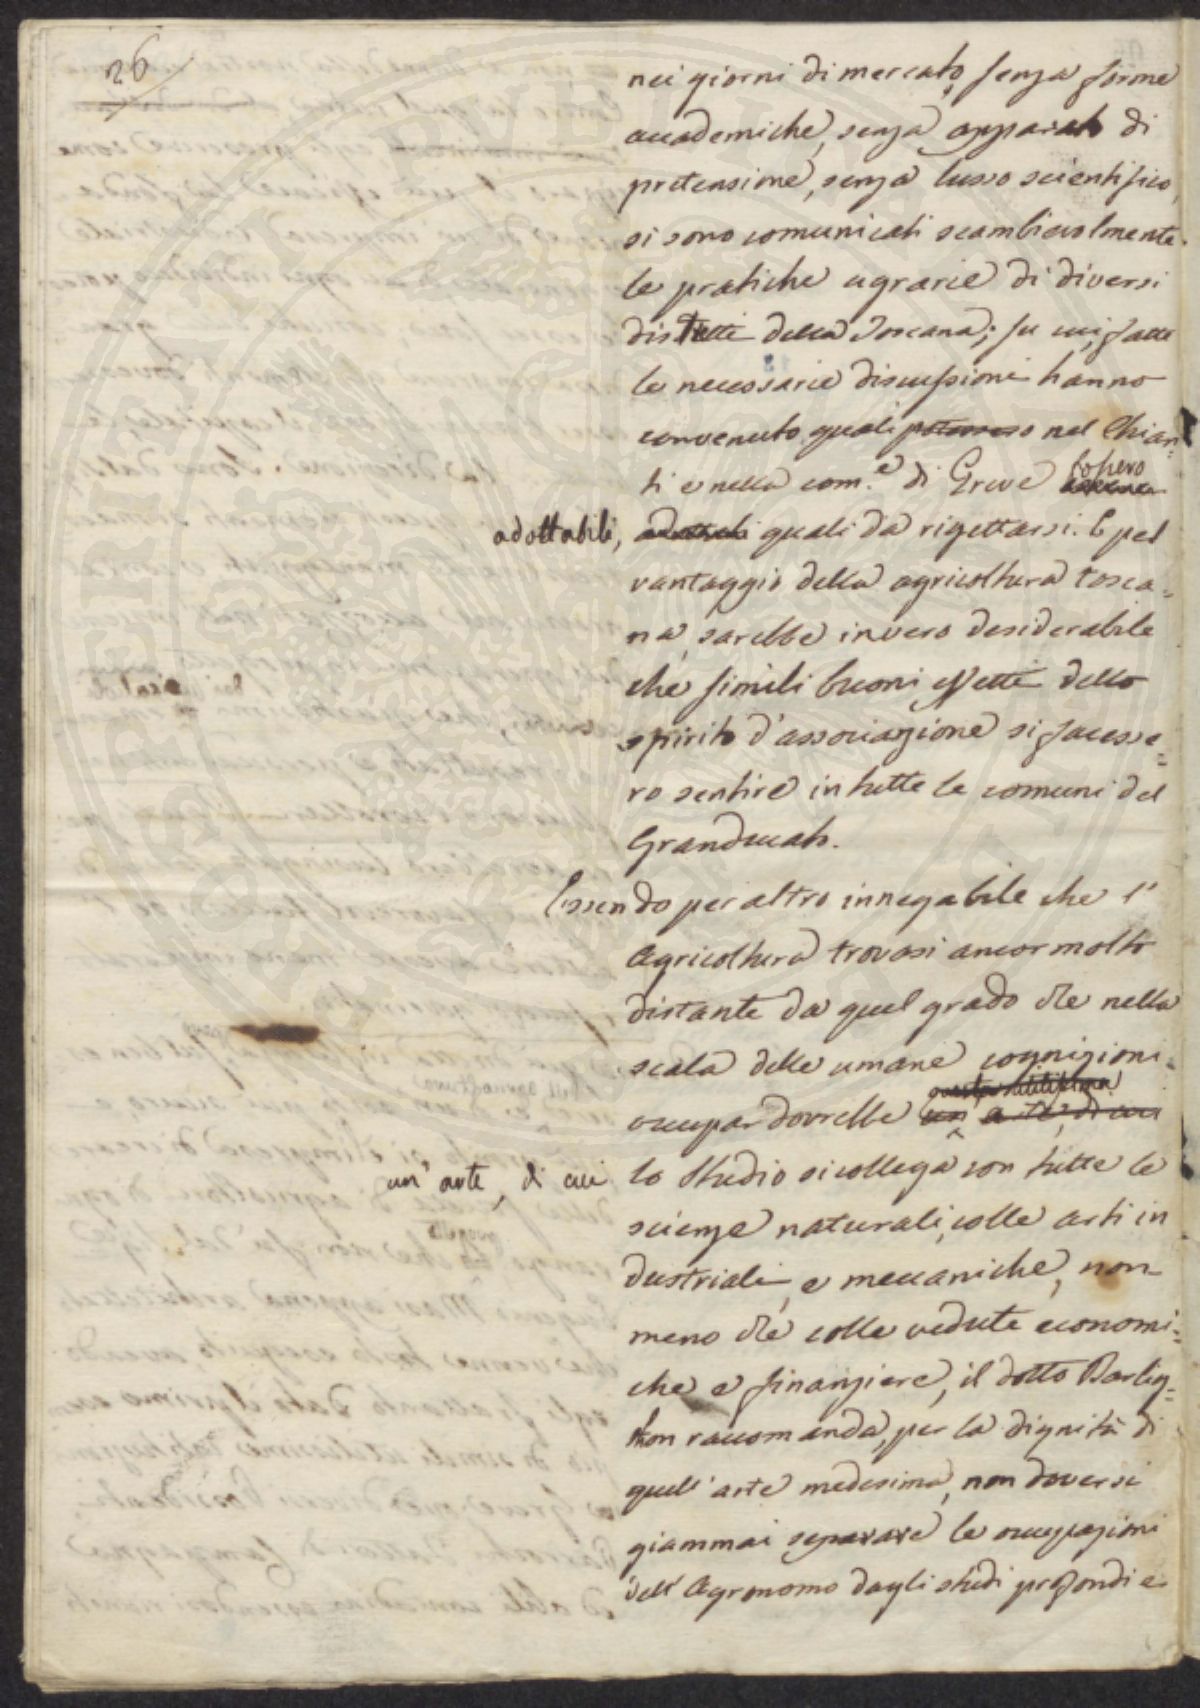 26
nei giorni di mercato, senza forme
accademiche, senza apparato di
pretensione, senza lusso scientifico,
si sono comunicati scambievolmente
le pratiche agrarie di diversi
distretti della Toscana; su cui, fatte
le necessarie discussioni hanno
convenuto quali potessero nel Chian-
ti e nella com.e di Greve fossero
adottabili, adottarsi quali da rigettarsi. E pel
vantaggio della agricoltura tosca=
na, sarebbe invero desiderabile
che simili buoni effetti dello
spirito d'associazione si facesse=
ro sentire in tutte le comuni del
Granducato.
Essendo per altro innegabile che l'
Agricoltura trovasi ancor molto
distante da quel grado che nella
scala delle umane cognizioni
questa utilissima
occupar dovrebbe un arte, di cui
un' arte, di cui lo studio si collega con tutte le
scienze naturali, colle arti in
dustriali, e meccaniche, non
meno che colle vedute economi=
che e finanziere, il dotto Parlig=
ton raccomanda, per la dignità di
quell' arte medesima, non doversi
giammai separare le occupazioni
dell' Agronomo dagli studi profondi e